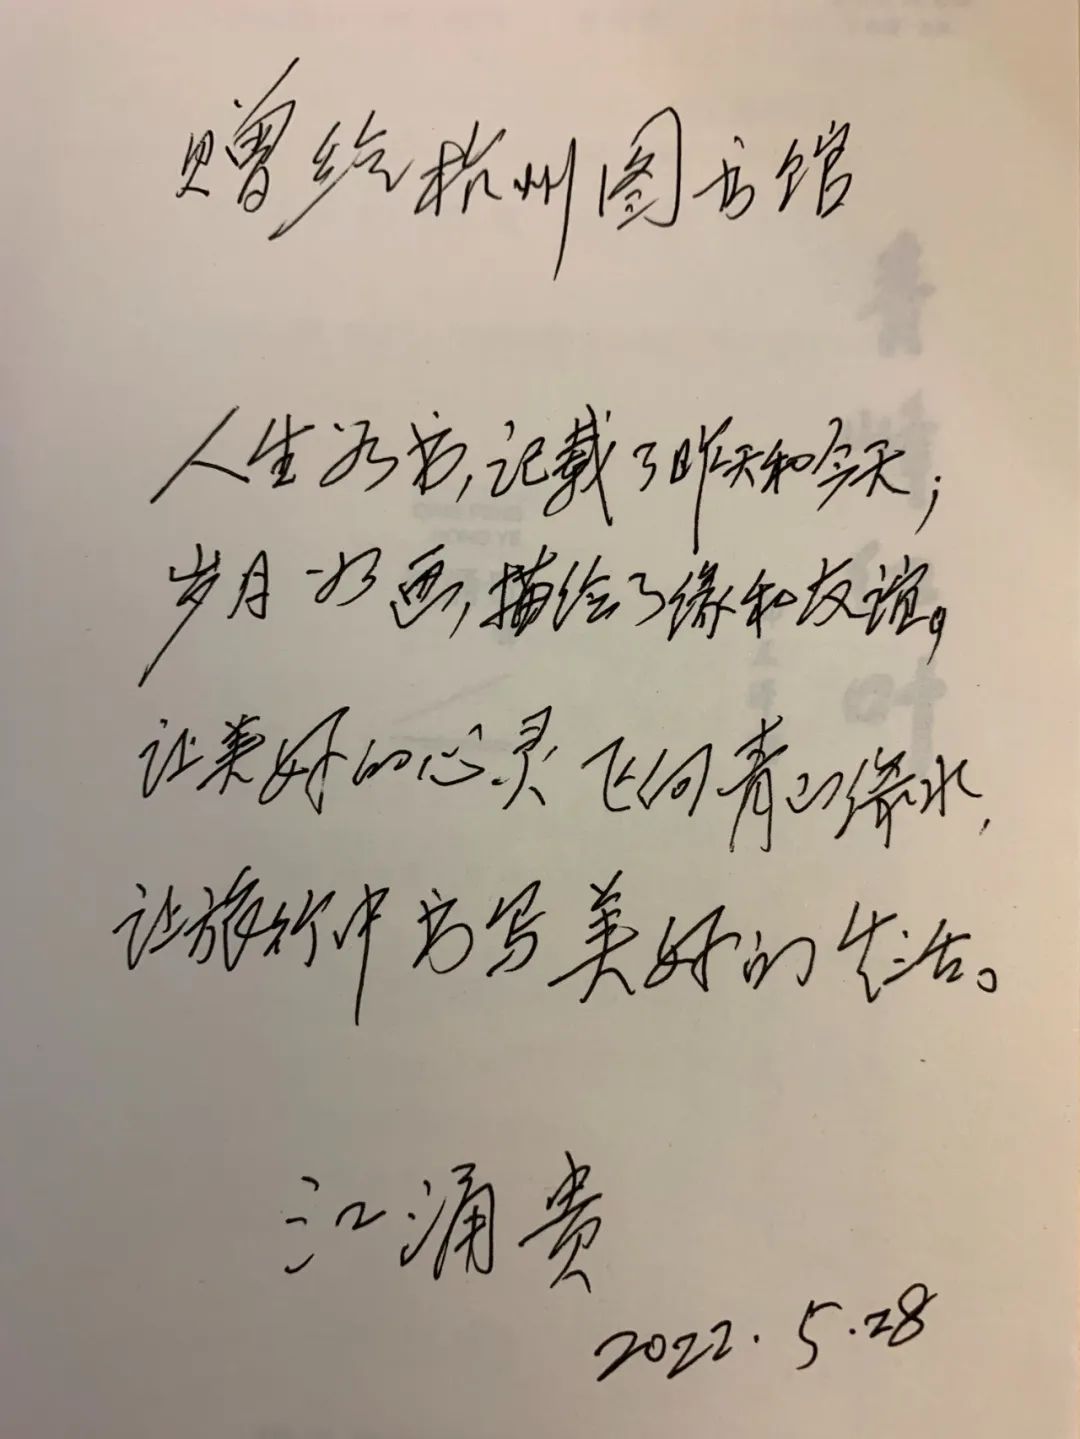 赠给杭州图书馆
人生如书,记载了昨天和今天;
岁月如画,描绘了缘和友谊。
让美好的心灵飞向青山绿水,
让旅行中书写美好的生活。
江涌贵
2022.5.28